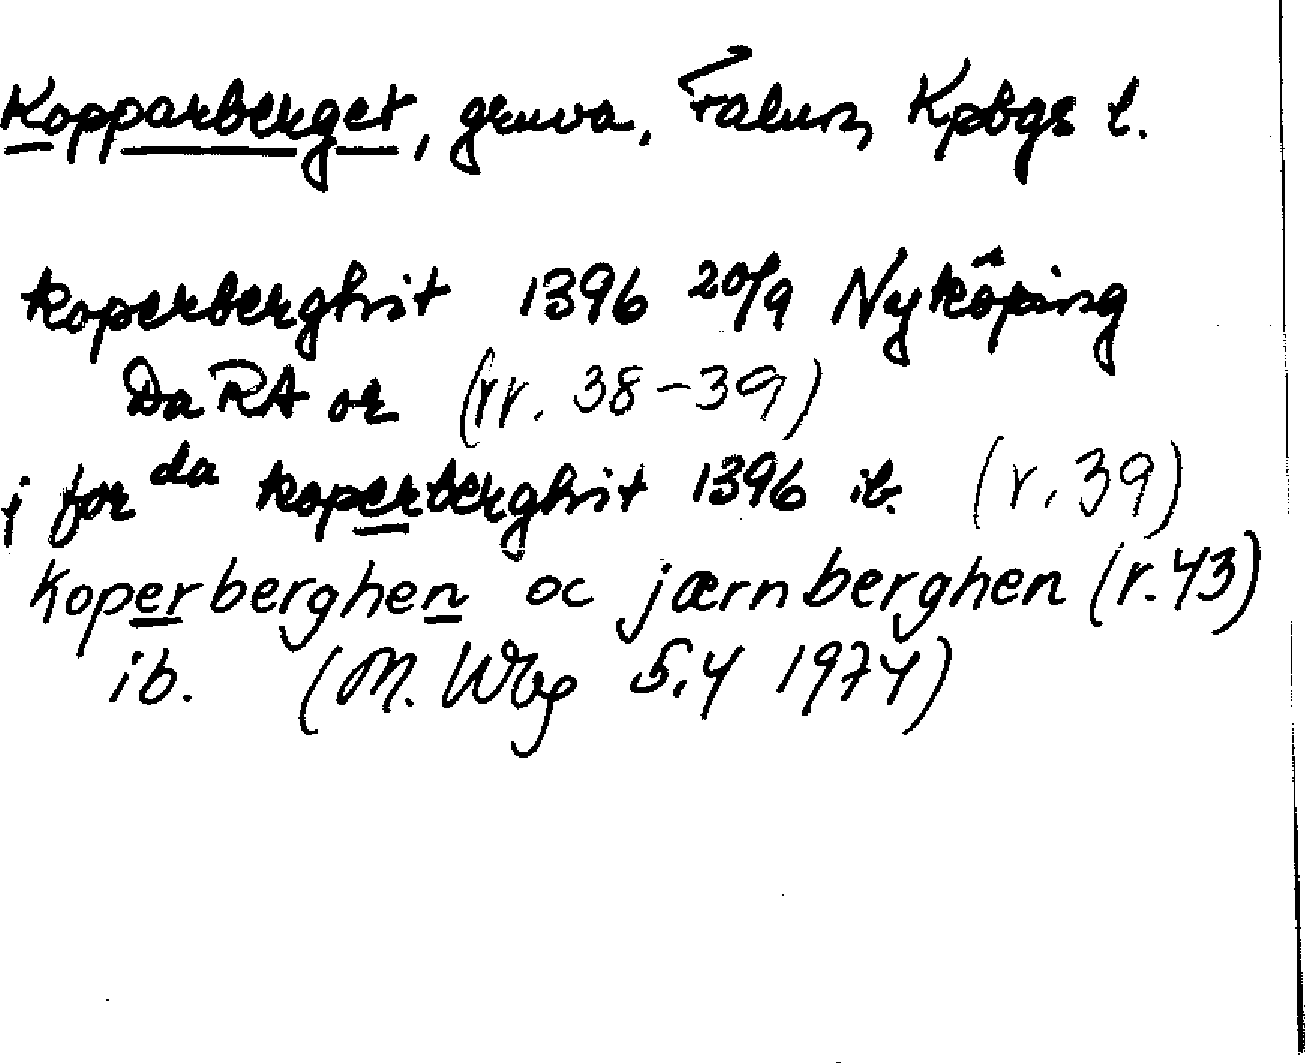 Kopparberget, gruva, Falun, Kpbgs l.
koperberghit 1396 20/9 Nyköping
Da RA or (rr. 38-39)
j for da koperberghit 1396 ib. (r. 39)
koperberghen oc jærnberghen (r. 43)
ib. (M. Wbg 5.4 1974)